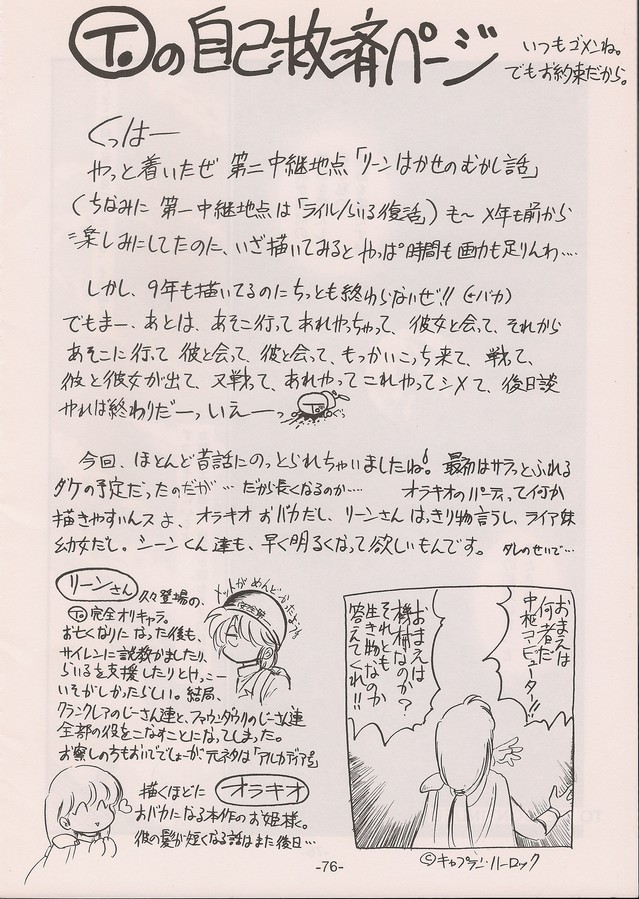 T.の自己救済ページ
いつもゴメンね。
でもお約束だから。
くっはー
やっと着いたぜ 第二中継地点「リーンはかせのむかし話」
(ちなみに 第一中継地点は「ライル/らいる復活」) も〜 X年も前から
楽しみにしてたのに、いざ描いてみると やっぱ時間も画力も足りんわ…
しかし、9年も描いてるのにちっとも終わらないぜ!! (←バカ)
でもまー、あとは、あそこ行って あれやっちゃって、彼女と会って、それから
あそこに行って 彼と会って、彼と会って、もっかいこっち来て、戦って、
彼と彼女が出て、又戦って、あれやって これやって シメて、後日談
やれば終わりだーっ いえーーっ
T.
今回、ほとんど昔話にのっとられちゃいましたね! 最初はサラッとふれる
ダケの予定だったのだが… だから長くなるのか… オラキオのパーティって何か
描きやすいんスよ、オラキオおバカだし、リーンさんはっきり物言うし、ライア妹
幼女だし。シーンくん達も、早く明るくなって欲しいもんです。 ダレのせいで…
リーンさん 久々登場の、
T.完全オリキャラ。
お亡くなりになった後も、
サイレンに説教かましたり、
らいるを支援したりとけっこー
いそがしかったらしい。結局、
クランクレアのじーさん連と、ファウンダウクのじーさん連
全部の役をこなすことになってしまった。
お察しのちもおいででしょーが元ネタは「アルカディア号」
メットがめんどかったよう
描くほどに オラキオ
おバカになる本作のお姫様。
彼の髪が短くなる話はまた後日…
おまえは
何者だ
中枢コンピューター!!
おまえは
機械なのか?
それとも
生き物なのか
答えてくれ!!
©キャプテン・ハーロック
-76-